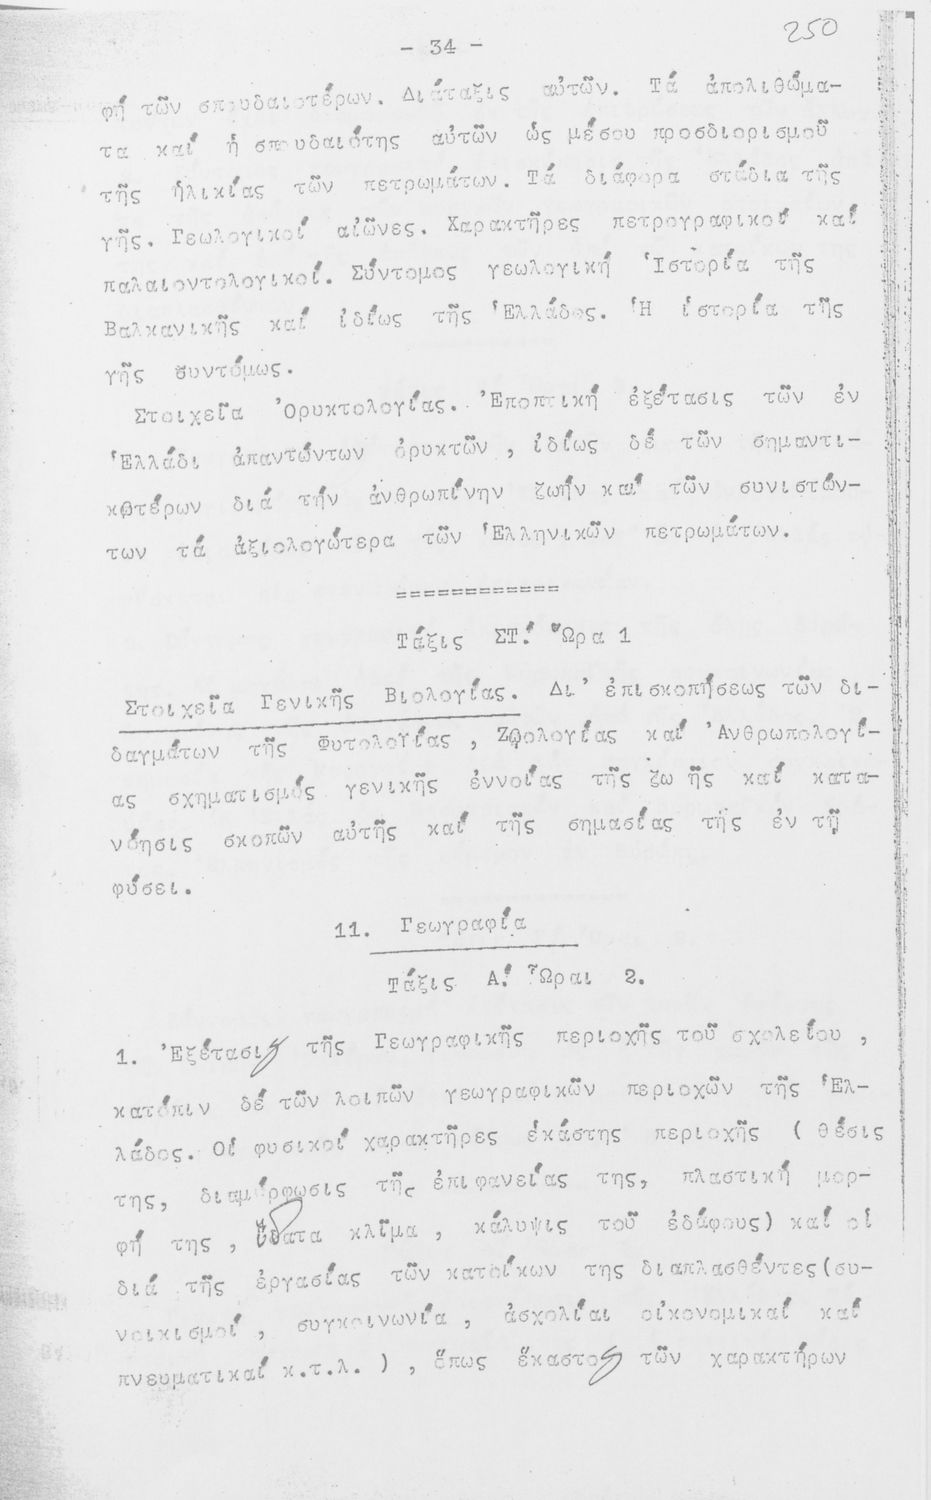 250
- 34 -
φή τῶν σπουδαιοτέρων. Διάταξις αὐτῶν. Τά ἀπολιθώμα-
τα καί ἡ σπουδαιότης αὐτῶν ὡς μέσου προσδιορισμοῦ
τῆς ἡλικίας τῶν πετρωμάτων. Τά διάφορα στάδια τῆς
γῆς. Γεωλογικοί αἰῶνες. Χαρακτῆρες πετρογραφικοί καί
παλαιοντολογικοί. Σύντομος γεωλογική Ἱστορία τῆς
Βαλκανικῆς καί ἰδίως τῆς Ἑλλάδος. Ἡ ἱστορία τῆς
γῆς συντόμως.
Στοιχεῖα Ὀρυκτολογίας. Ἐποπτική ἐξέτασις τῶν ἐν
Ἑλλάδι ἀπαντώντων ὀρυκτῶν, ἰδίως δέ τῶν σημαντι-
κοτέρων διά τήν ἀνθρωπίνην ζωήν καί τῶν συνιστών-
των τά ἀξιολογώτερα τῶν Ἑλληνικῶν πετρωμάτων.
============
Τάξις ΣΤ! Ὥρα 1
Στοιχεῖα Γενικῆς Βιολογίας. Δι' ἐπισκοπήσεως τῶν δι-
δαγμάτων τῆς Φυτολογίας, Ζῳολογίας καί Ἀνθρωπολογί-
ας σχηματισμός γενικῆς ἐννοίας τῆς ζω ῆς καί κατα-
νόησις σκοπῶν αὐτῆς καί τῆς σημασίας τής ἐν τῇ
φύσει.
11. Γεωγραφία
Τάξις Α! Ὧραι 2.
1. Ἐξέτασις τῆς Γεωγραφικῆς περιοχῆς τοῦ σχολείου,
κατόπιν δέ τῶν λοιπῶν γεωγραφικῶν περιοχῶν τῆς Ἑλ-
λάδος. Οἱ φυσικοί χαρακτῆρες ἑκάστης περιοχῆς ( θέσις
της, διαμόρφωσις τῆς ἐπιφανείας της, πλαστική μορ-
φή της, ὕδατα κλῖμα, κάλυψις τοῦ ἐδάφους) καί οἱ
διά τῆς ἐργασίας τῶν κατοίκων της διαπλασθέντες (συ-
νοικισμοί, συγκοινωνία, ἀσχολίαι οἰκονομικαί καί
πνευματικαί κ.τ.λ. ), ὅπως ἕκαστος τῶν χαρακτήρων